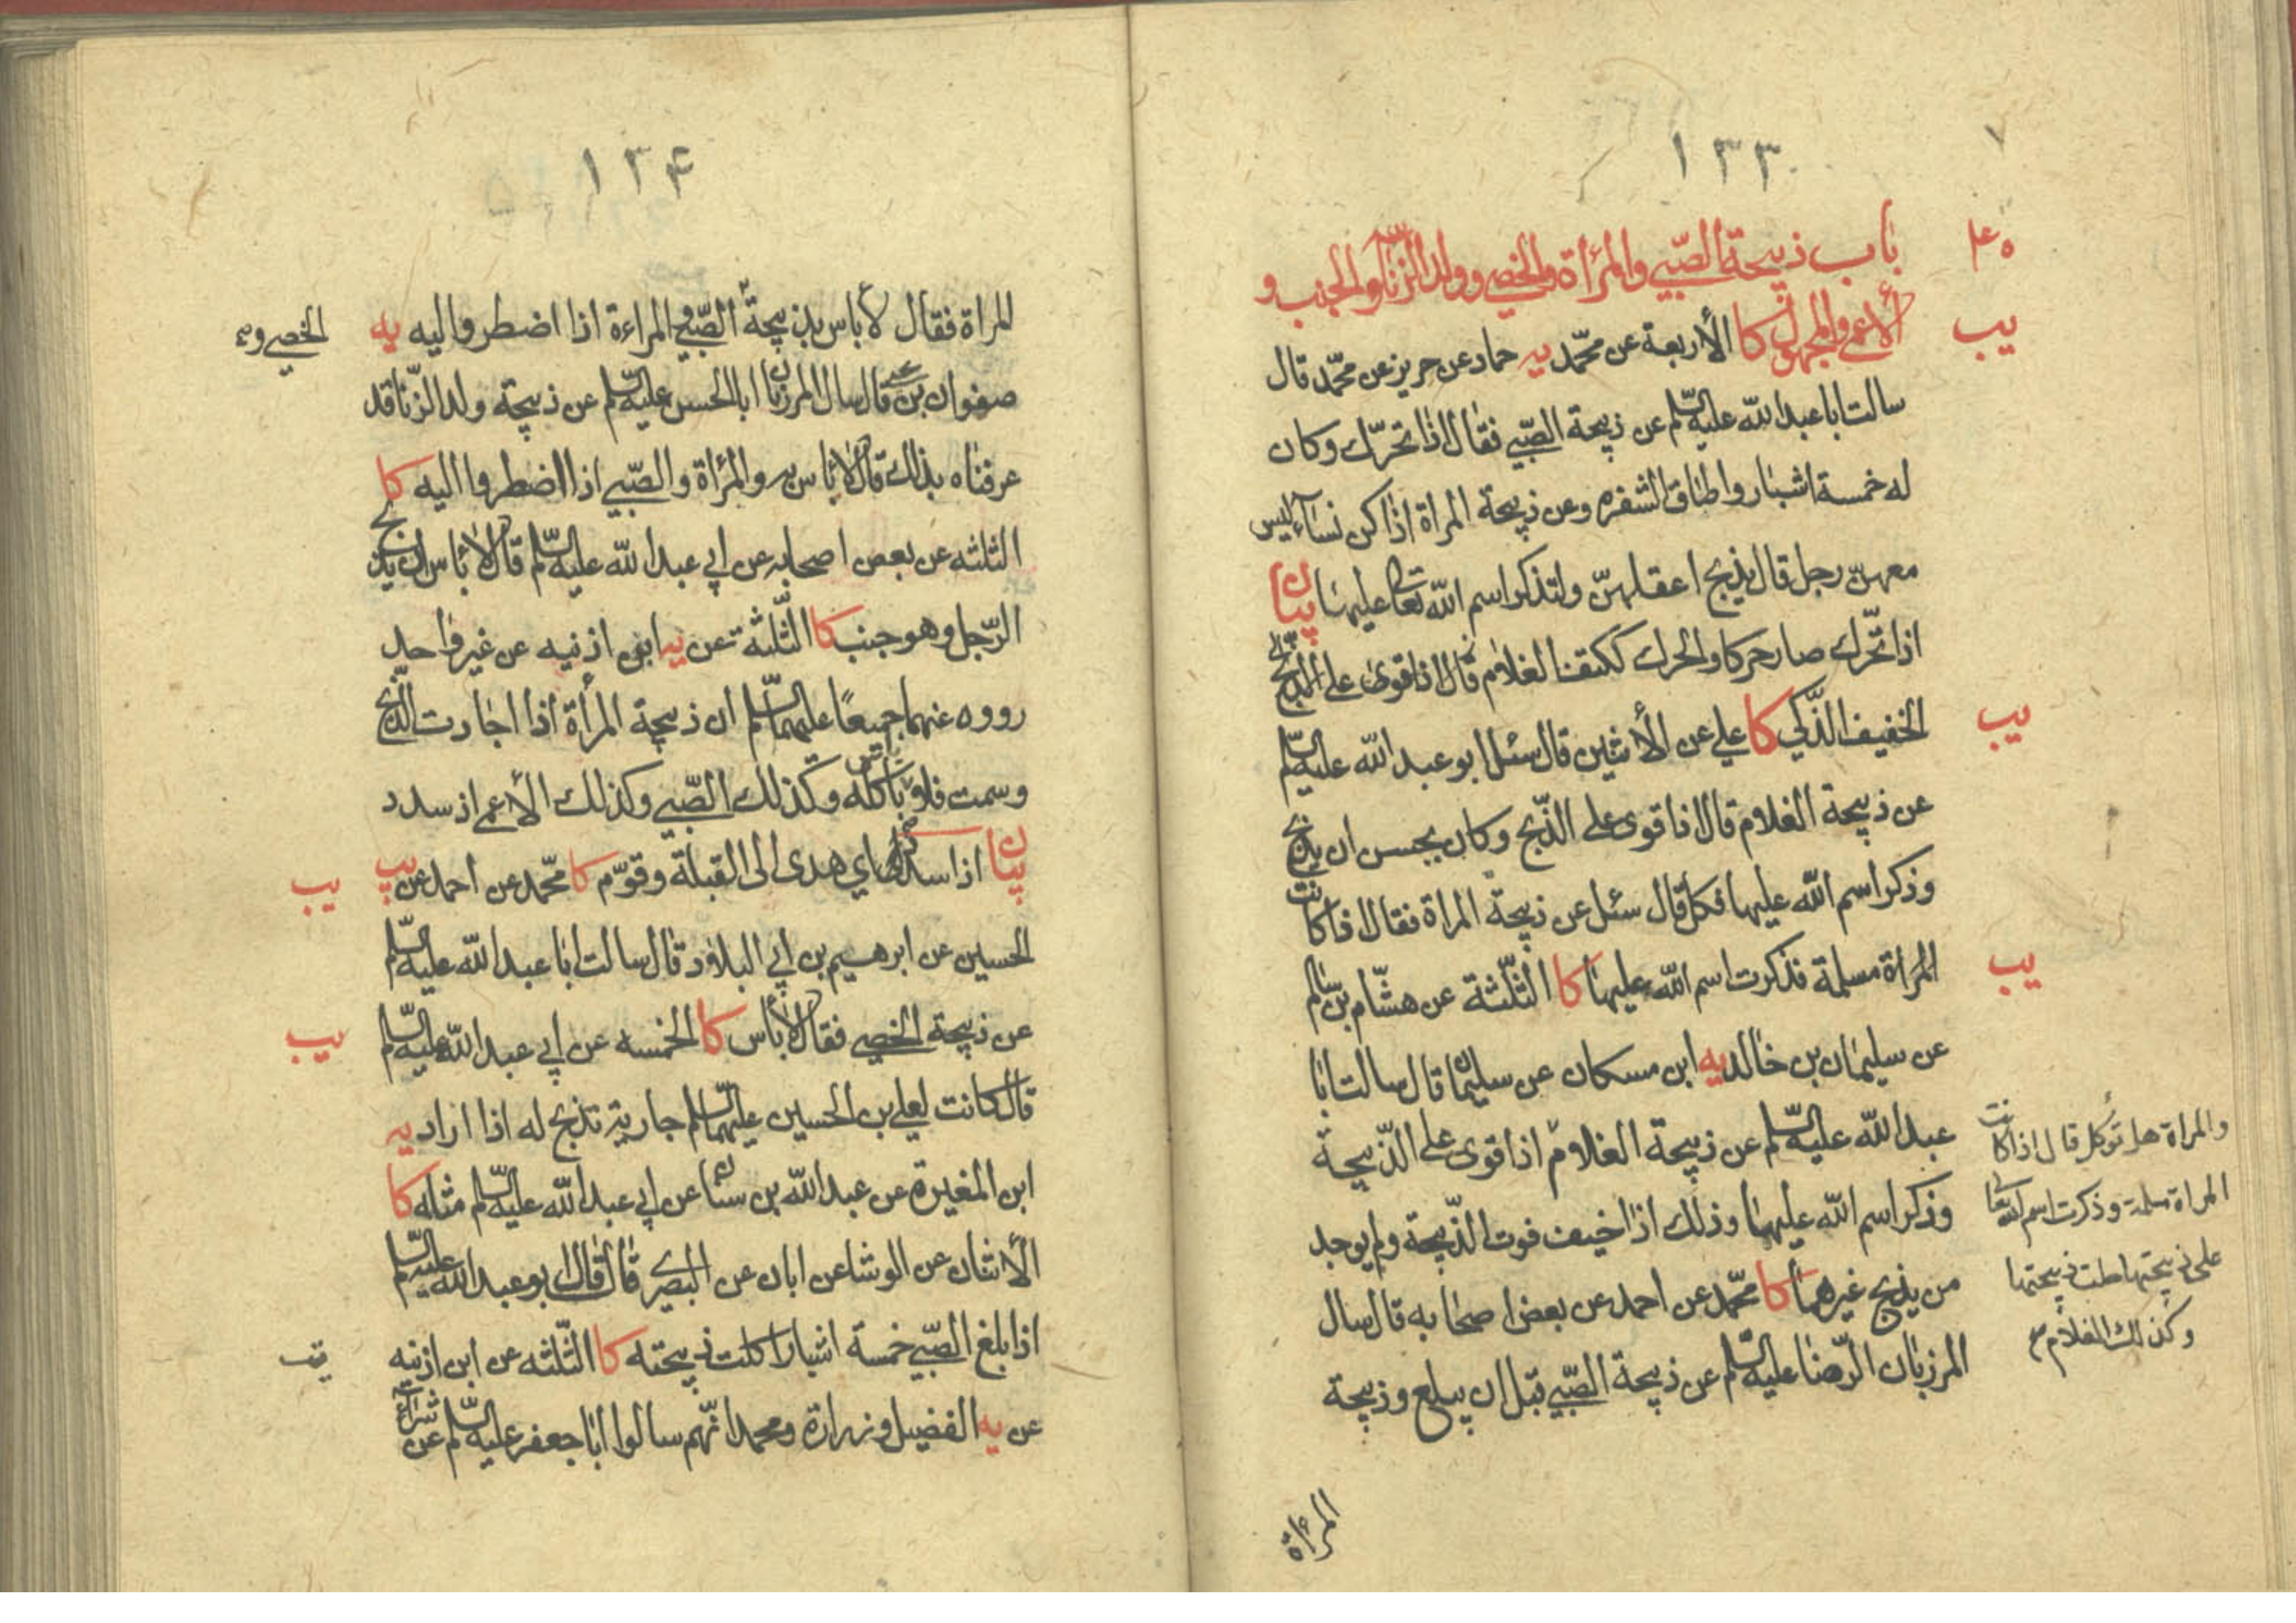 ١٣٣
باب ذبيحة الصّبي والمرأة والخصي وولد الزّنا والجنب و
الأعمى والمجهول كا الأربعة عن محمّد يه حماد عن حريز عن محمّد قال
يب
سالت ابا عبد الله عليه السّلم عن ذبيحة الصّبي فقال اذا تحرّك وكان
له خمسة اشبار واطاق الشفره وعن ذبيحة المراة اذا كن نساء ليس
معهنّ رجل قال يذبح اعقلهنّ ولتذكر اسم الله تعالى عليها بيان
اذا تحّرك صار حركا والحرك ككتف الغلام
الخفيف الذّكي كا علي عن الأثنين قال سئل ابو عبد الله عليه السّلم
يب
عن ذبيحة الغلام قال اذا قوى على الذّبح وكان يحسن ان يذبح
وذكر اسم الله عليها فكل قال سئل عن ذبيحة المراة فقال اذا كانت
المرأة مسلمة فذكرت اسم الله عليها كا الثّلثة عن هشّام بن سالم
يب
عن سليمان بن خالد يه ابن مسكان عن سليمان قال سالت ابا
عبد الله عليه السّلم عن ذبيحة الغلام اذا قوى على الذّبيحة
وذكر اسم الله عليها وذلك اذا خيف فوت الذّبيحة ولم يوجد
من يذبح غيرهما كا محمّد عن احمد عن بعض اصحابه قال سال
المرزبان الرّضا عليه السّلم عن ذبيحة الصّبي قبل ان يبلغ وذبيحة
والمراة هل تؤكل قال اذا كانت
المراة مسلمة وذكرت اسم الله تعالى
على ذبيحتها حلت ذبيحتها
وكذلك الغلام
المرءاة
١٣۴
المراة فقال لا باس بذبيحة الصّبي والمراءة اذا اضطروا اليه يه
الخصي و
صفوان بن يحيى قال سال المرزبان ابا الحسن عليه السّلم عن ذبيحة ولد الزّنا قد
عرفناه بذلك قال لا باس به والمرأة والصّبي اذا اضطروا اليه كا
الثلثه عن بعض اصحابه عن ابي عبد الله عليه السّلم قال لا باس ان يذبح
الرّجل وهو جنب كا الثّلثة عن يه ابن اذنيه عن غير واحد
رووه عنهما جميعًا عليهما السّلم ان ذبيحة المرأة اذا اجادت الذّبح
وسمت فلا بأس باكله وكذلك الصّبي وكذلك الأعمى اذ سدد
بيان اذا سدد اي هدى الى القبلة وقوّم كا محمّد عن احمد عن يب
يب
الحسين عن ابرهيم بن ابي البلاد قال سالت ابا عبد الله عليه السّلم
عن ذبيحة الخصي فقال لا بأس كا الخمسه عن ابي عبد الله عليه السّلم
يب
قال كانت لعلي بن الحسين عليهما السّلم جارية تذبح له اذا اراد يه
ابن المغيرة عن عبد الله بن سنان عن ابي عبد الله عليه السّلم مثله كا
الأثنان عن الوشا عن ابان عن البصري قال قال ابو عبد الله عليه السّلم
اذا بلغ الصّبي خمسة اشبار اكلت ذبيحته كا الثّلثه عن ابن اذنيه
يب
عن يه الفضيل وزرارة ومحمد انّهم سالوا ابا جعفر عليه السّلم عن شراء